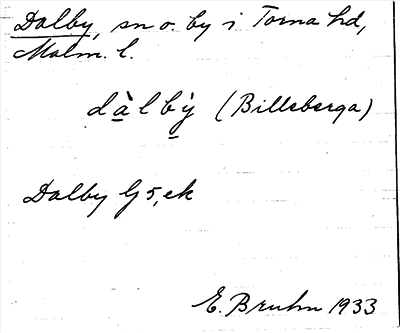 Dalby, sn o. by i Torna hd,
Malm. l.
dà̱lbỳ̱ (Billeberga)
Dalby G5, ek
E. Bruhn 1933